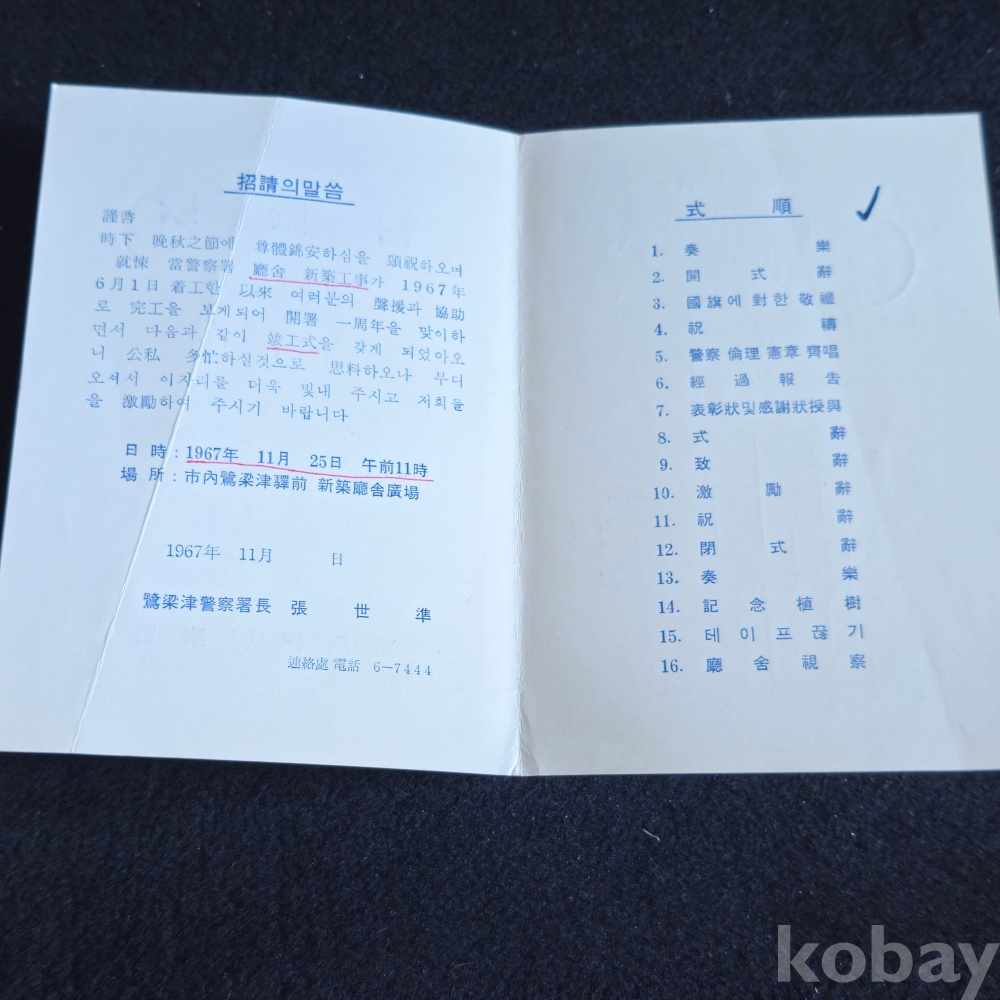 招請의말씀
謹啓
時下 晚秋之節에 尊體錦安하심을 頌祝하오며
就悚 當警察署 廳舍 新築工事가 1967年
6月1日 着工한 以來 여러분의 聲援과 協助
로 完工을 보게되어 開署 一周年을 맞이하
면서 다음과 같이 竣工式을 갖게 되었아오
니 公私 多忙하실것으로 思料하오나 부디
오셔서 이자리를 더욱 빛내 주시고 저희들
을 激勵하여 주시기 바랍니다
日時:1967年 11月 25日 午前11時
場所:市內鷺梁津驛前 新築廳舍廣場
1967年 11月 日
鷺梁津警察署長 張世準
連絡處 電話 6-7444
式順
1. 奏樂
2. 開式辭
3. 國旗에 對한 敬禮
4. 祝禱
5. 警察倫理憲章齊唱
6. 經過報告
7. 表彰狀및感謝狀授與
8. 式辭
9. 致辭
10. 激勵辭
11. 祝辭
12. 閉式辭
13. 奏樂
14. 記念植樹
15. 테이프끊기
16. 廳舍視察
kobay